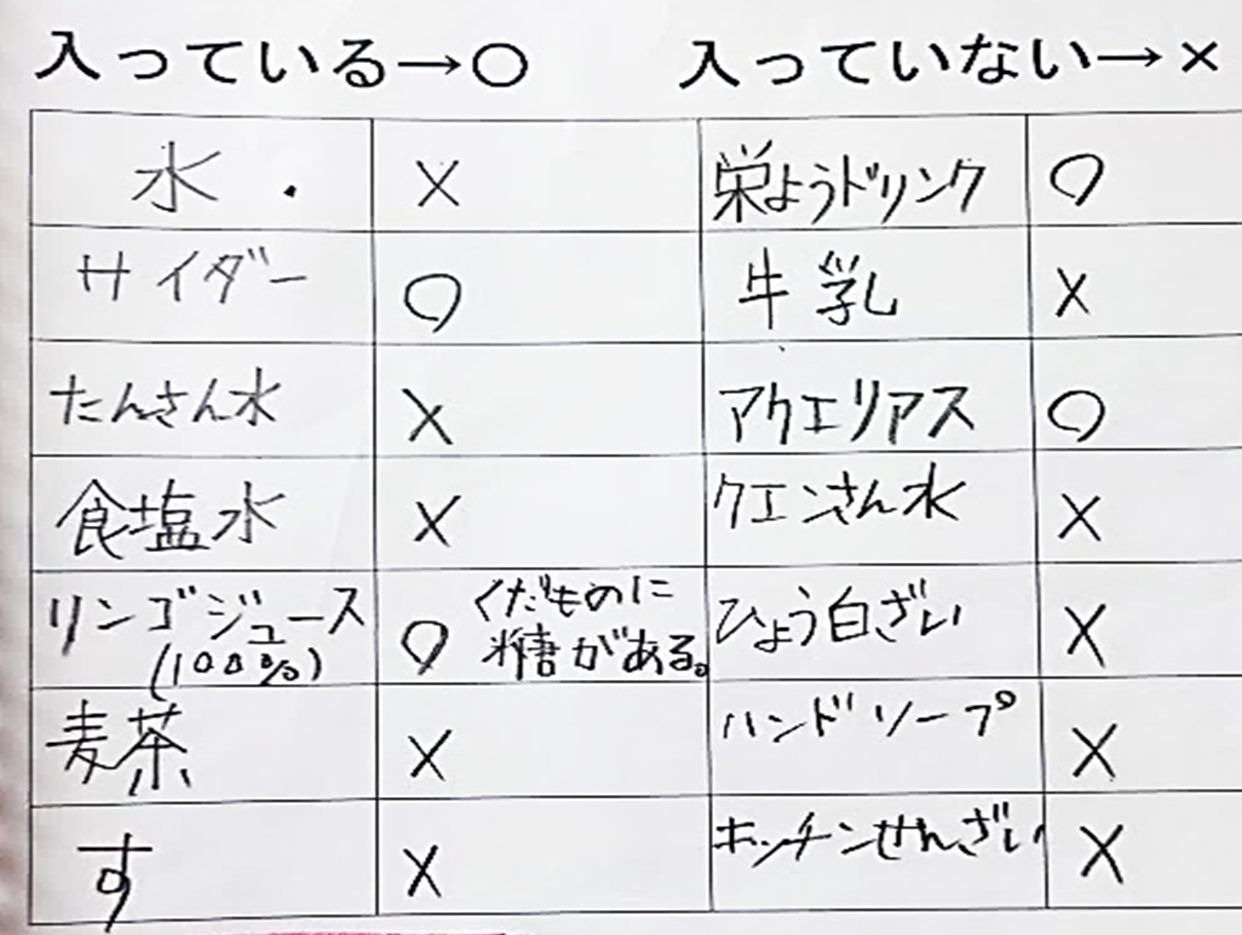 入っている→○ 入っていない→×
水 × 栄ようドリンク ○
サイダー ○ 牛乳 ×
たんさん水 × アクエリアス ○
食塩水 × クエンさん水 ×
リンゴジュース ○ くだものに ひょう白ざい ×
(100%) 糖がある。
麦茶 × ハンドソープ ×
す × キッチンせんざい ×